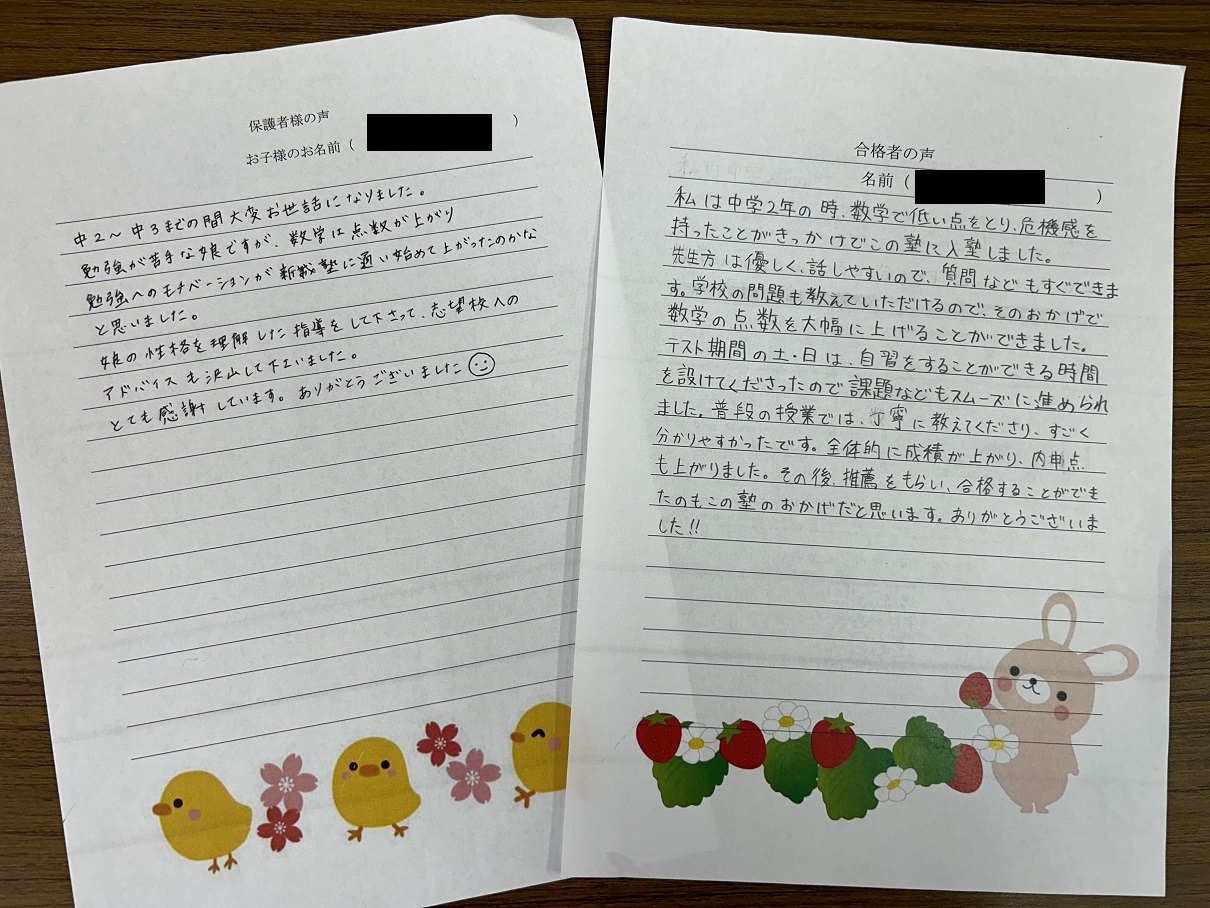 保護者様の声
お子様のお名前（ ）
中2～中3までの間大変お世話になりました。
勉強が苦手な娘ですが、数学は点数が上がり
勉強へのモチベーションが新戦塾に通い始めて上がったのかな
と思いました。
娘の性格を理解した指導をして下さって、志望校への
アドバイスも沢山して下さいました。
とても感謝しています。ありがとうございました
合格者の声
名前（ ）
私は中学2年の時、数学で低い点をとり、危機感を
持ったことがきっかけでこの塾に入塾しました。
先生方は優しく、話しやすいので、質問などもすぐできま
す。学校の問題も教えていただけるので、そのおかげで
数学の点数を大幅に上げることができました。
テスト期間の土・日は、自習をすることができる時間
を設けてくださったので課題などもスムーズに進められ
ました。普段の授業では、丁寧に教えてくださり、すごく
分かりやすかったです。全体的に成績が上がり、内申点
も上がりました。その後、推薦をもらい、合格することができ
たのもこの塾のおかげだと思います。ありがとうございま
した!!